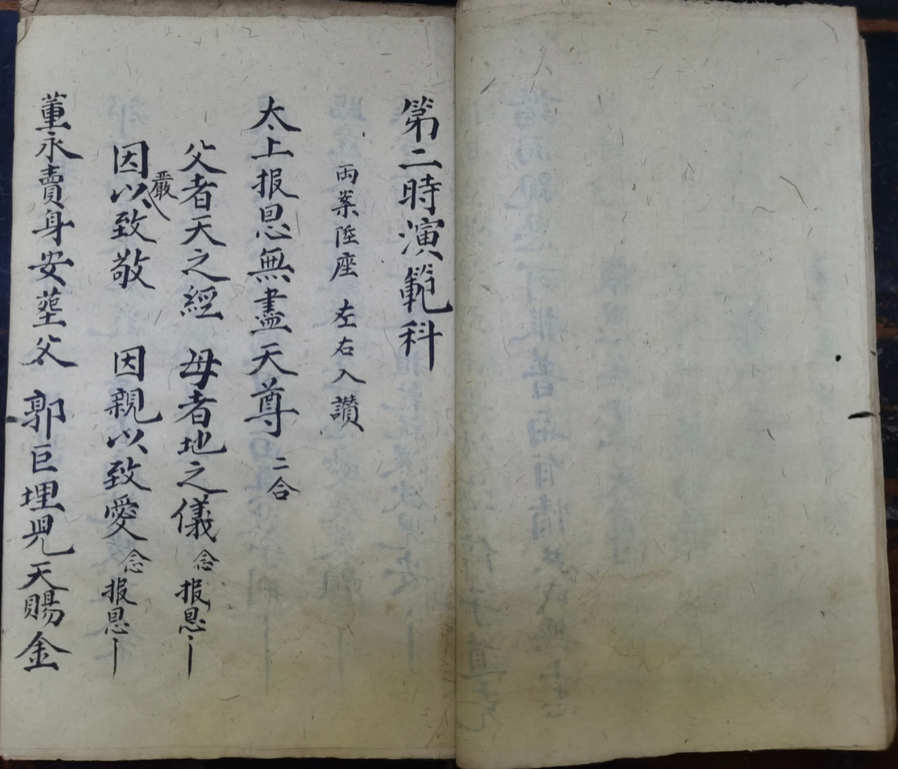 第二時演範科
両案陞座 左右入讚
太上报恩無盡天尊 二合
父者天之經 母者地之儀 念报恩
因嚴以致敬 因親以致愛 念报恩
董永賣身安塟父 郭巨埋児天賜金